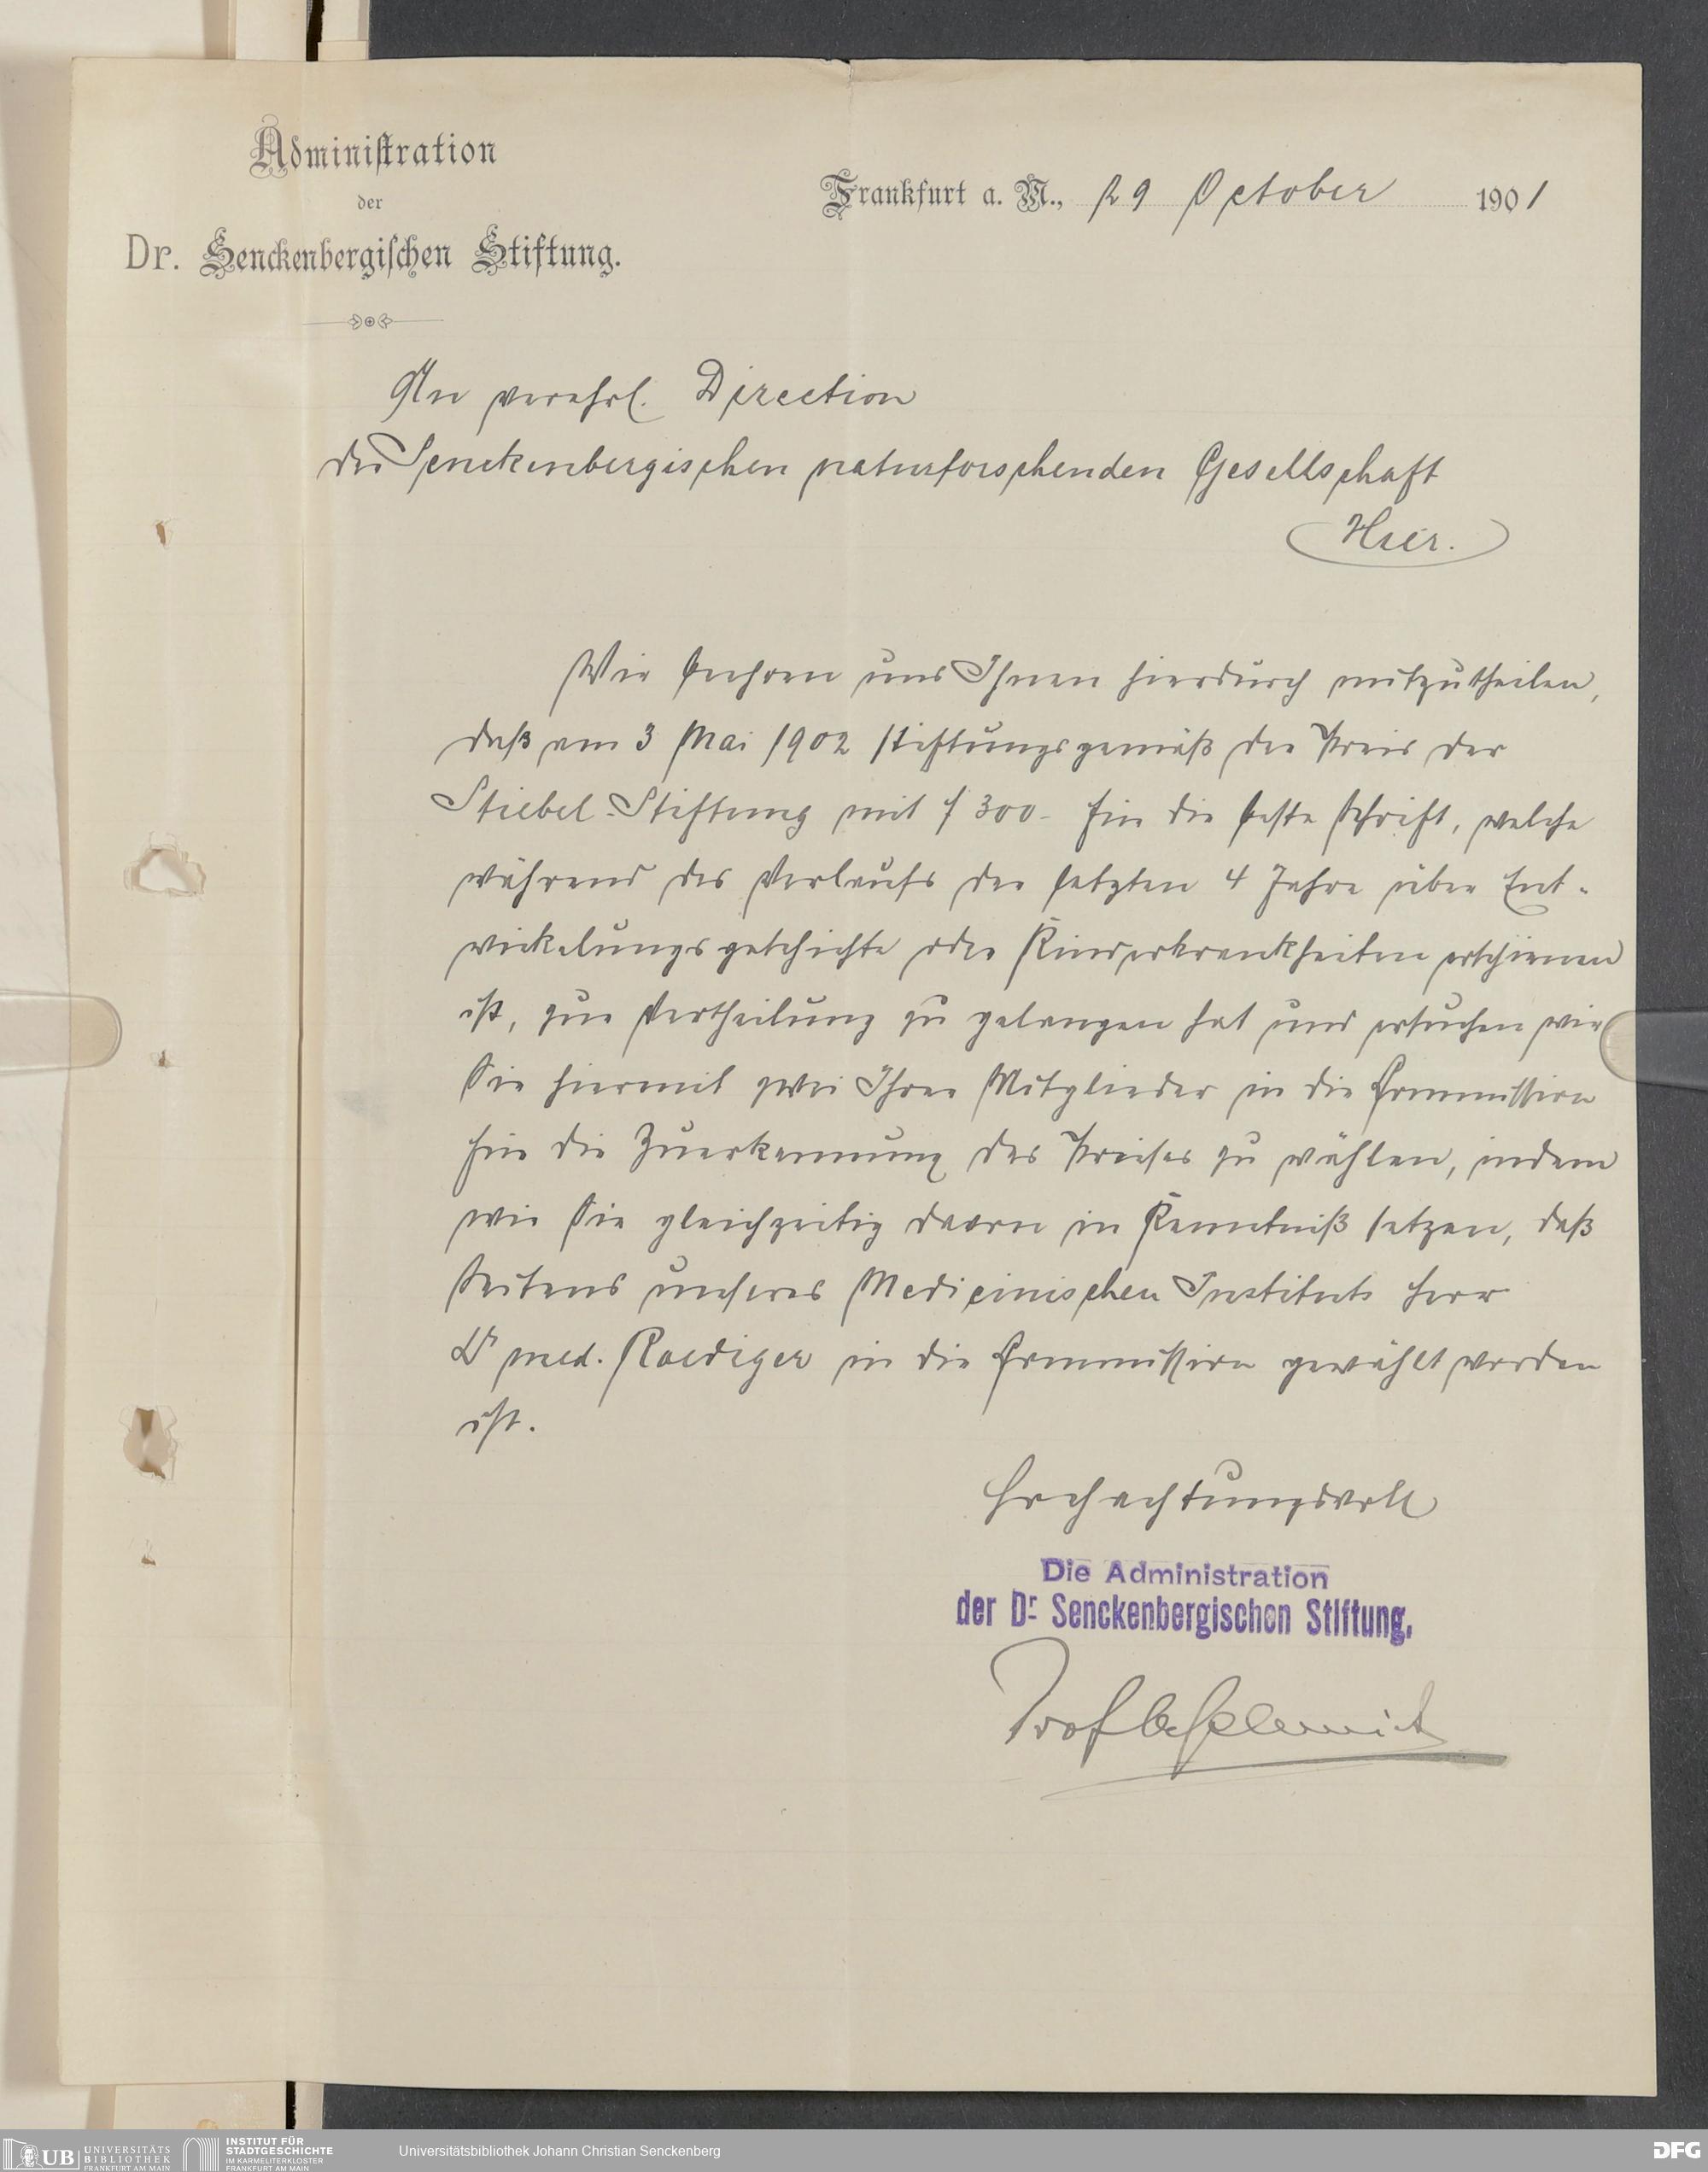 Administration
der
Dr. Senckenbergischen Stiftung.
Frankfurt a. M., 29 October 1901
An verehrl. Direction
der Senckenbergischen naturforschenden Gesellschaft
Hier.
Wir beehren uns Ihnen hierdurch mitzutheilen,
daß am 3 Mai 1902 stiftungsgemäß der Preis der
Stiebel-Stiftung mit f 300.- für die beste Schrift, welche
während des Verlaufs der letzten 4 Jahre über Ent-
wickelungsgeschichte oder Kinderkrankheiten erschienen
ist, zur Vertheilung zu gelangen hat und ersuchen wir
Sie hiermit zwei Ihrer Mitglieder in die Commission
für die Zuerkennung des Preises zu wählen, indem
wir Sie gleichzeitig davon in Kenntniß setzen, daß
Seitens unseres Medicinischen Instituts Herr
Dr med. Roediger in die Commission gewählt worden
ist.
Hochachtungsvoll
Die Administration
der Dr. Senckenbergischen Stiftung.
Prof
UB UNIVERSITÄTS
BIBLIOTHEK
FRANKFURT AM MAIN
INSTITUT FÜR
STADTGESCHICHTE
IM KARMELITERKLOSTER
FRANKFURT AM MAIN
Universitätsbibliothek Johann Christian Senckenberg
DFG